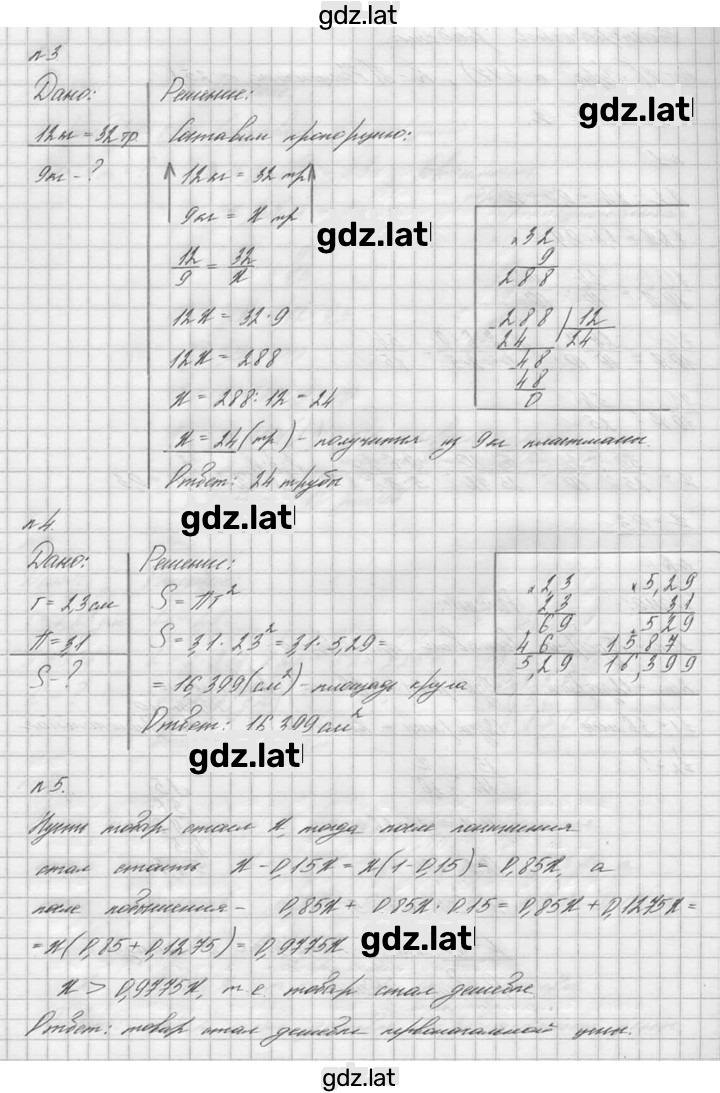 gdz.lat
n3
Дано: Решение:
gdz.lat
12 кг = 32 тр. Составим пропорцию:
9 кг - ? 12 кг = 32 тр
9 кг = x тр
gdz.lat
× 32
9
288
12/9 = 32/x
12x = 32 · 9
288 | 12
24 24
48
48
0
12x = 288
x = 288 : 12 = 24
x = 24 (тр) - получится из 9 кг пластмассы.
Ответ: 24 трубы
gdz.lat
n4.
Дано: Решение:
r = 2,3 см S = πr²
π = 3,1 S = 3,1 · 2,3² = 3,1 · 5,29 =
S - ? = 16,399 (см²) - площадь круга
Ответ: 16,399 см²
× 2,3
2,3
69
46
5,29
× 5,29
3,1
529
1587
16,399
gdz.lat
n5.
Пусть товар стоил x, тогда после понижения
стал стоить x - 0,15x = x(1 - 0,15) = 0,85x, а
после повышения - 0,85x + 0,85x · 0,15 = 0,85x + 0,1275x =
= x(0,85 + 0,1275) = 0,9775x
gdz.lat
x > 0,9775x, т.е. товар стал дешевле
Ответ: товар стал дешевле первоначальной цены.
gdz.lat